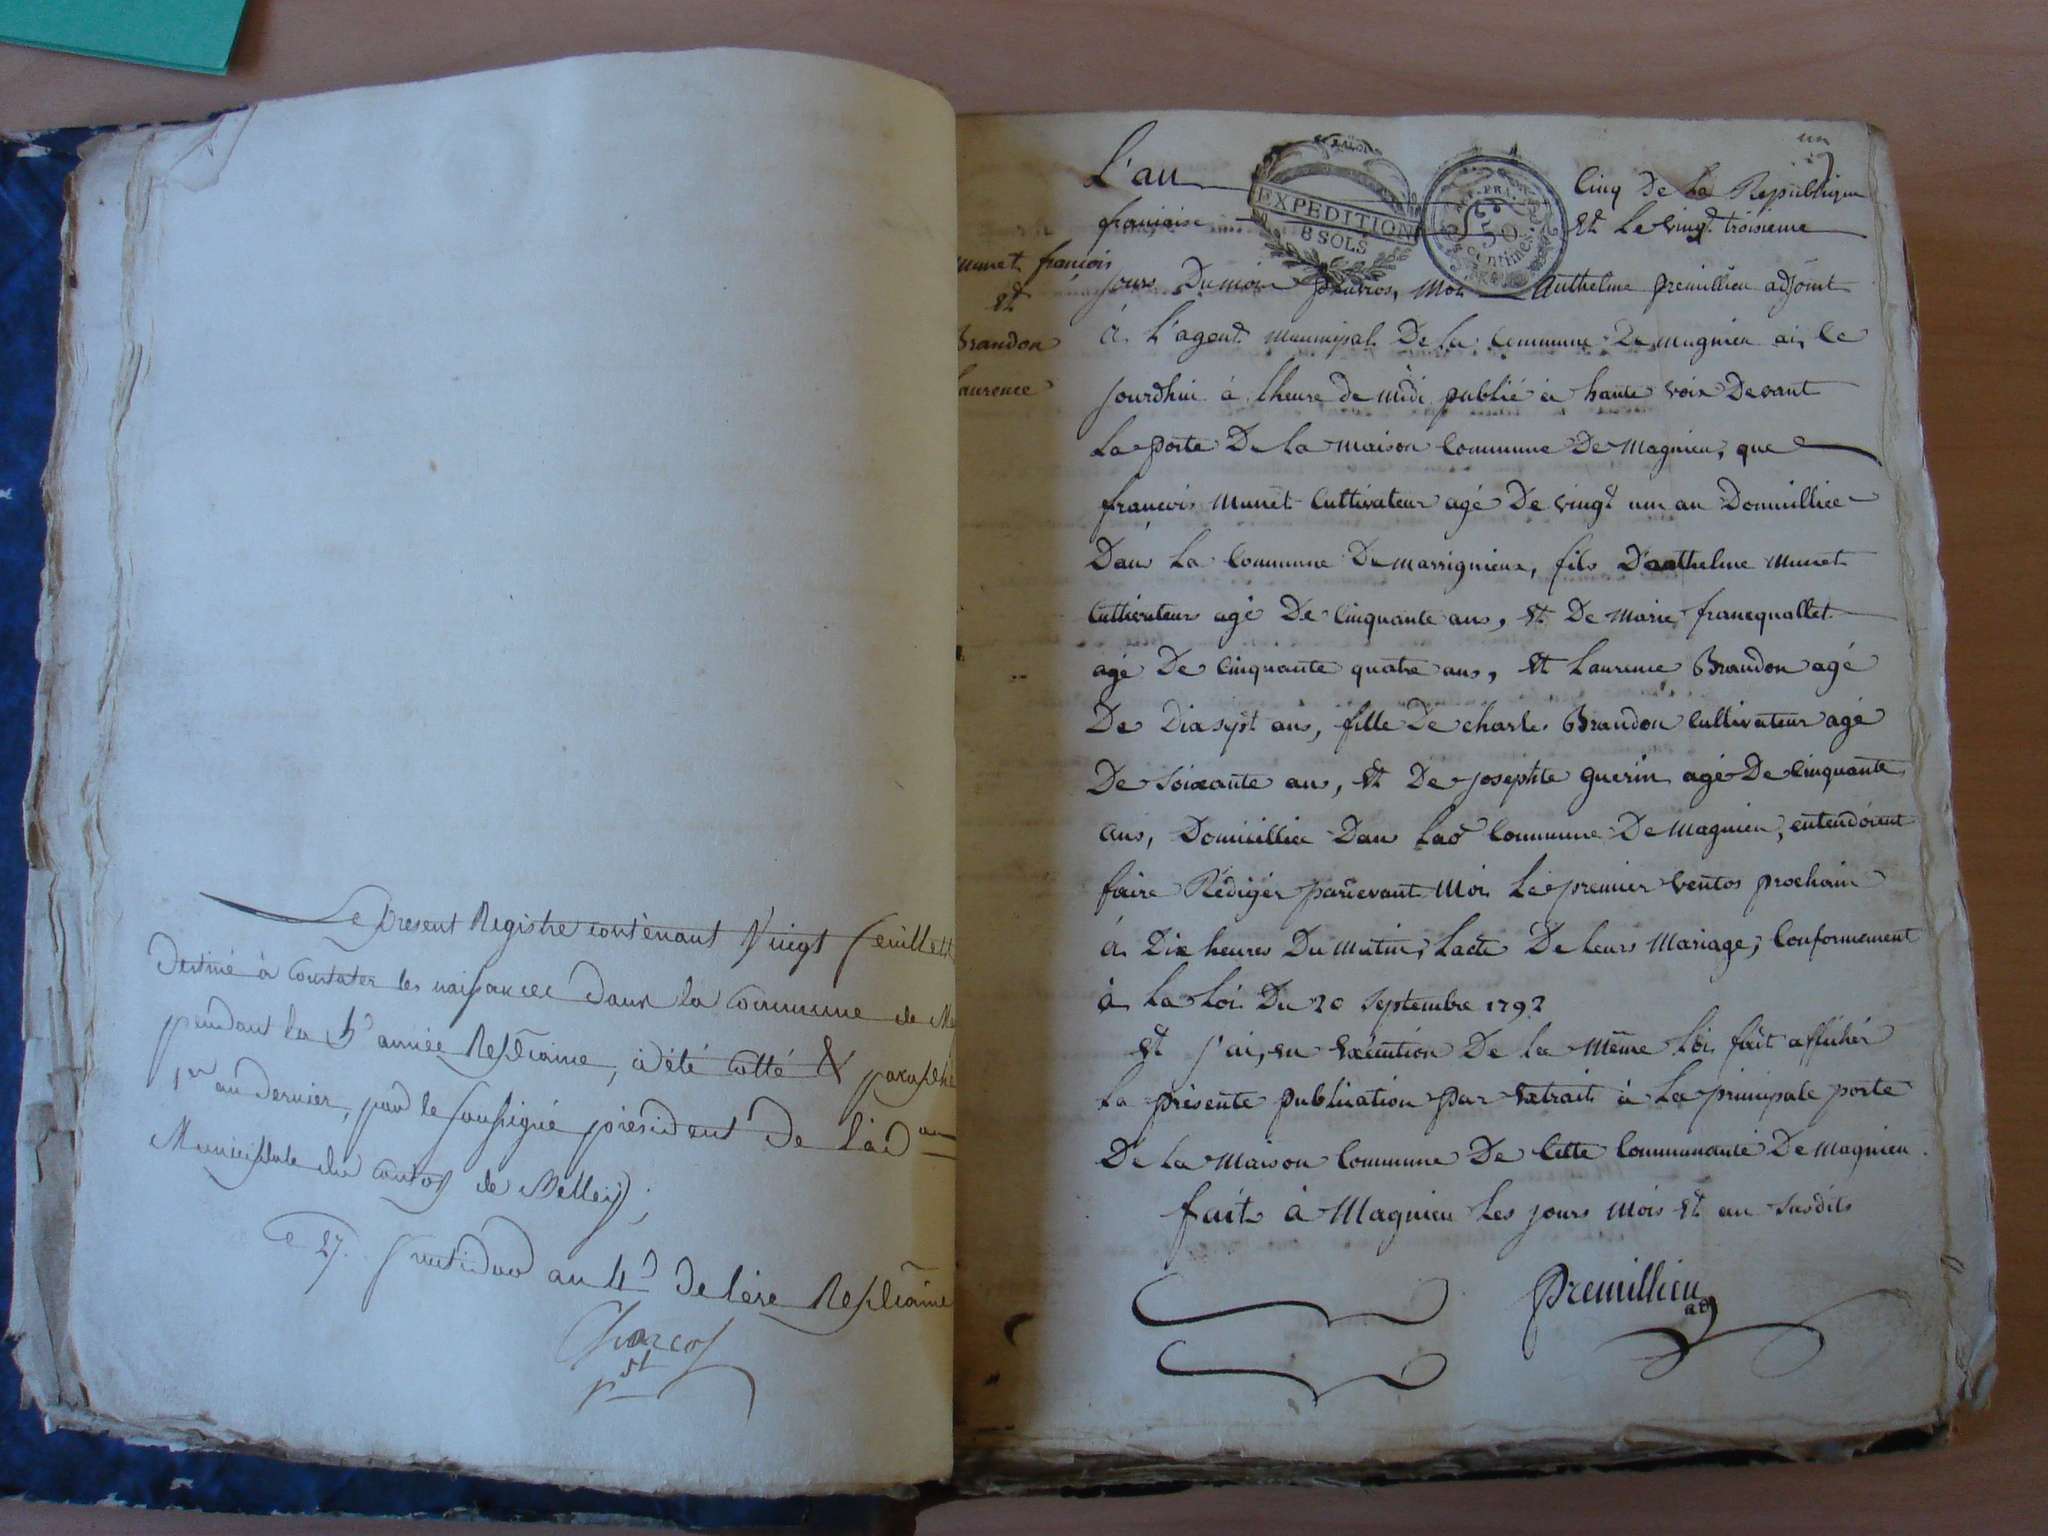 Le present Registre contenant Vingt feuillett
destiné à Constater les naissances dans la Commune de Ma
pendant la 5e année Replicaine, a été cotté & paraphé
1er au dernier, par le soussigné président de l'ad on
Municipale du canton de Belley;
Ce 27. fructidor an 4e de l'ère Replicaine
Charcot
pdt
un
L'an Cinq de La Republique
EXPEDITION
8 SOLS
50
centimes
francaise Et Le vingt troisieme
jours Du mois pluvios, Moi Anthelme premillieu adjoint
à L'agent municipal De La Commune De magnieu ai, Ce
jourdhui à Lheure de midi publié à haute voix Devant
La porte De La maison Commune De Magnieu, que
francois Munet Cultivateur agé De vingt un an Domicillice
Dans La Commune De marrignieux, fils D'anthelme Munet
Cultivateur agé De Cinquante ans, Et De Marie francquallet
agé De Cinquante quatre ans, Et Laurence Brandon agé
De Dixsept ans, fille De charles Brandon Cultivateur agé
De Soixante ans, Et De josephte guerin agé De Cinquante
ans, Domicillice Dans Commune De Magnieu, entendoient
faire Rédigér pardevant Moi Le premier ventos prochain
à Dix heures Du Matin, Lacte De Leurs Mariage, Conformement
à La Loi Du 20 Septembre 1792
Et j'ai, en Execution De La Même Loi fait affichér
La présente publication par Extrait à La principale porte
De La Maison Commune De Cette Communauté De Magnieu.
fait à Magnieu Les jours Mois Et an Susdits
Premillieu
adj
munet francois
Et
Brandon
Laurence